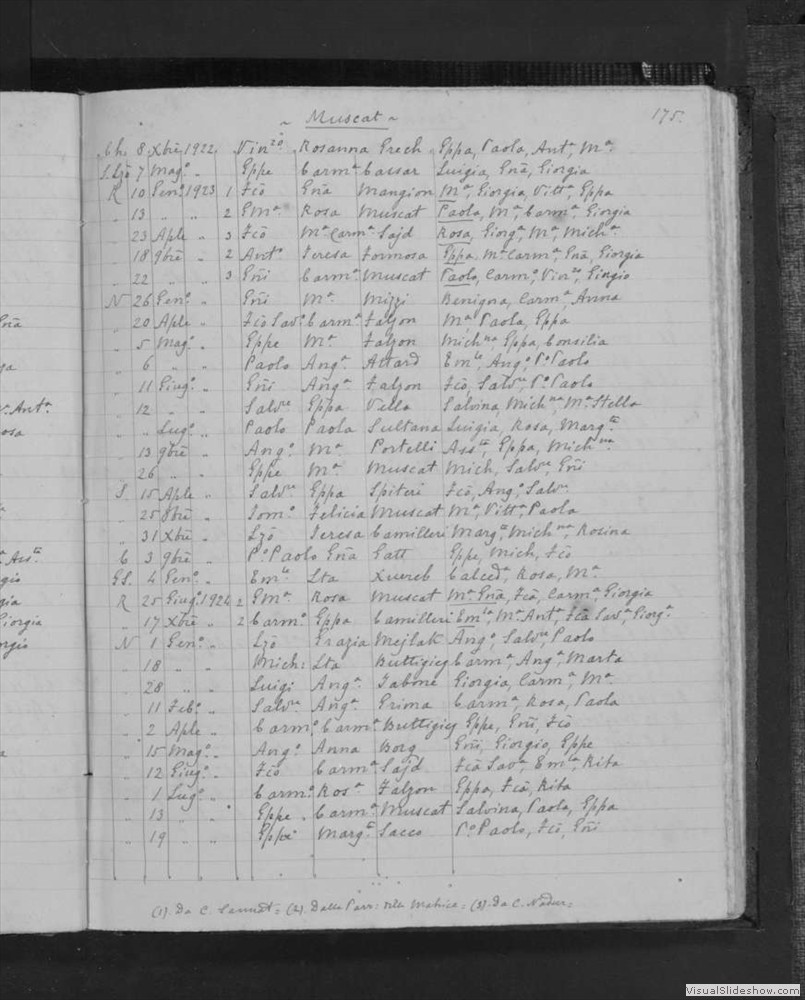 ~ Muscat ~
175.
Ch. 8 Xbre 1922 Vinzo Rosanna Grech Gppa, Paola, Anta, Ma
7 Mago „ Gppe Carma Caesar Luigia, Gñã, Giorgia
R 10 Geno 1923 1 Fcõ Gñã Mangion Ma, Giorgia, Vitta, Gppa
„ 13 „ „ 2 Gma Rosa Muscat Paola, Ma, Carma, Giorgia
„ 23 Aple „ 3 Fcõ Ma Carma Sajd Rosa, Giorga, Ma, Micha
„ 18 9bre „ 2 Anto Teresa Formosa Gppa, Ma Carma, Gñã, Giorgia
„ 22 „ „ 3 Gñi Carma Muscat Paolo, Carmo, Vinzo, Giorgio
N 26 Geno „ Gñi Ma Mizzi Benigna, Carma, Anna
„ 20 Aple „ Fcõ Savo Carma Falzon Ma, Paola, Gppa
„ 5 Mago „ Gppe Ma Falzon Michna, Gppa, Consilia
„ 6 „ „ Paolo Anga Attard Emle, Ango, Po Paolo
„ 11 Giugo „ Gñi Anga Falzon Fcõ, Salvre, Po Paolo
„ 12 „ „ Salvre Gppa Vella Salvina, Michna, Ma Stella
„ „ Lugo „ Paolo Paola Sultana Luigia, Rosa, Margta
„ 13 9bre „ Ango Ma Portelli Assta, Gppa, Michna
„ 26 „ „ Gppe Ma Muscat Mich, Salvre, Gñi
S. 15 Aple „ Salvre Gppa Spiteri Fcõ, Ango, Salvre
„ 25 8bre „ Tomo Felicia Muscat Ma, Vitta, Paola
„ 31 Xbre „ Ljõ Teresa Camilleri Margta, Michna, Rosina
C 3 9bre „ Po Paolo Gñã Gatt Gppe, Mich, Fcõ
GS. 4 Geno „ Emle Lta Xuereb Calceda, Rosa, Ma
R 25 Giugo 1924 2 Gma Rosa Muscat Ma Gñã, Fcã, Carma, Giorgia
„ 17 Xbre „ 2 Carmo Gppa Camilleri Emla, Ma Ant, Fcã Sava, Giorga
N 1 Geno „ Ljõ Grazia Mejlak Ango, Salvre, Paolo
„ 18 „ „ Mich: Lta Buttigieg Carma, Anga, Marta
„ 28 „ „ Luigi Anga Tabone Giorgia, Carma, Ma
„ 11 Febo „ Salvre Anga Grima Carma, Rosa, Paola
„ 2 Aple „ Carmo Carma Buttigieg Gppe, Gñi, Fcõ
„ 15 Mago „ Ango Anna Borg Gñi, Giorgio, Gppe
„ 12 Giugo „ Fcõ Carma Sajd Fcã Sava, Emla, Rita
„ 1 Lugo „ Carmo Rosa Falzon Gppa, Fcã, Rita
„ 13 „ „ Gppe Carma Muscat Salvina, Paola, Gppa
„ 19 „ „ Gppe Margta Sacco Po Paolo, Fcõ, Gñi
(1). Da C. Sannat: (2). Dalla Parr: della Matrice: (3). Da C. Nadur:
VisualSlideshow.com